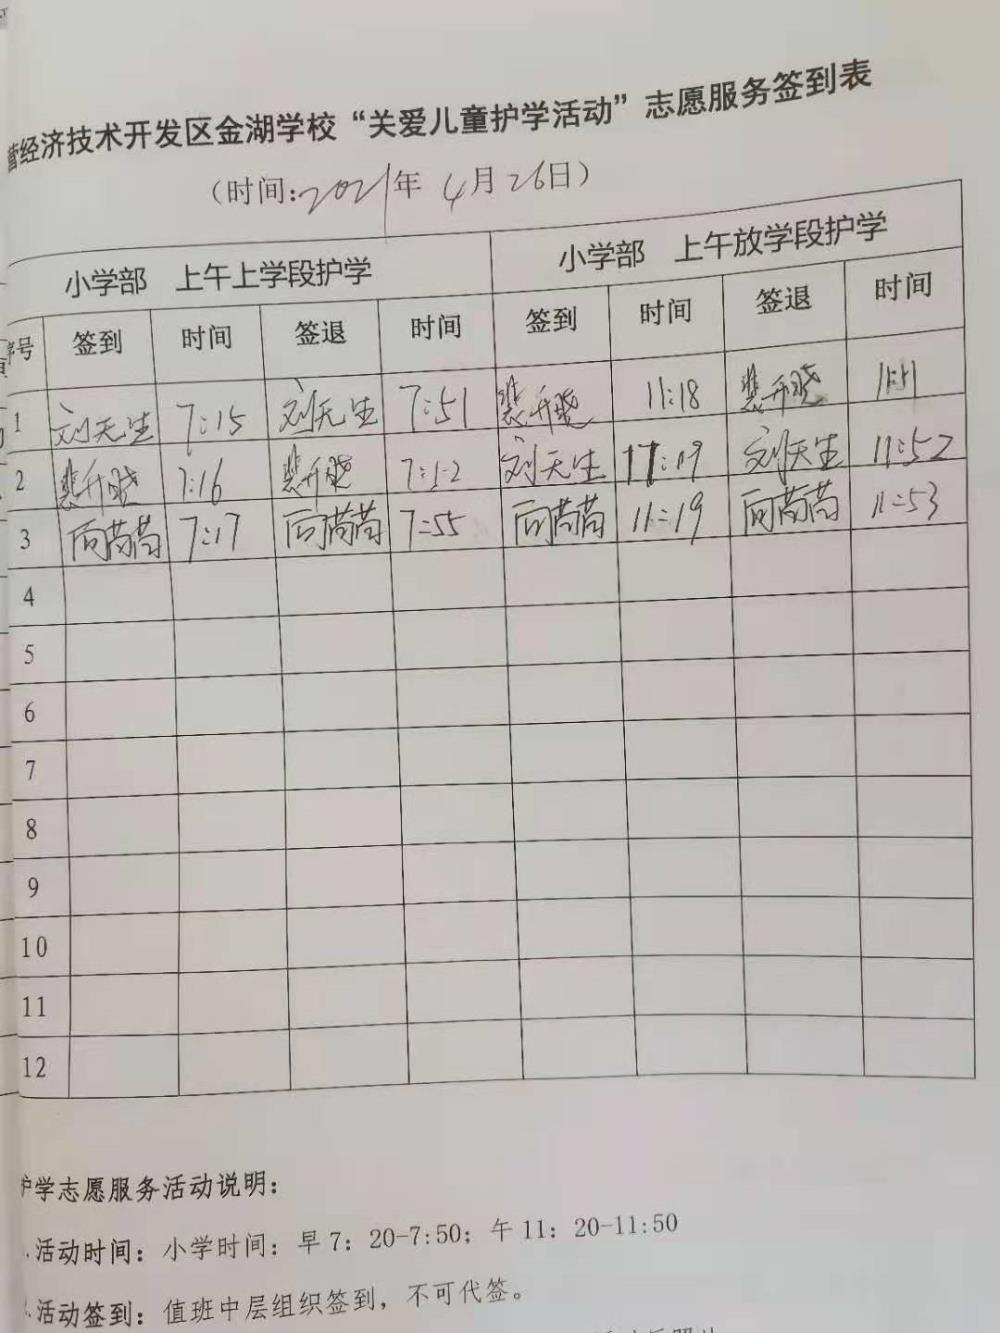 营经济技术开发区金湖学校“关爱儿童护学活动”志愿服务签到表
(时间:2021年 4月 26日)
小学部 上午上学段护学 小学部 上午放学段护学
序号 签到 时间 签退 时间 签到 时间 签退 时间
1 刘天生 7:15 刘天生 7:51 裴升晓 11:18 裴升晓 11:51
2 裴升晓 7:16 裴升晓 7:52 刘天生 11:19 刘天生 11:52
3 向茜茜 7:17 向茜茜 7:55 向茜茜 11:19 向茜茜 11:53
4
5
6
7
8
9
10
11
12
护学志愿服务活动说明:
.活动时间:小学时间:早7:20-7:50;午11:20-11:50
.活动签到:值班中层组织签到,不可代签。